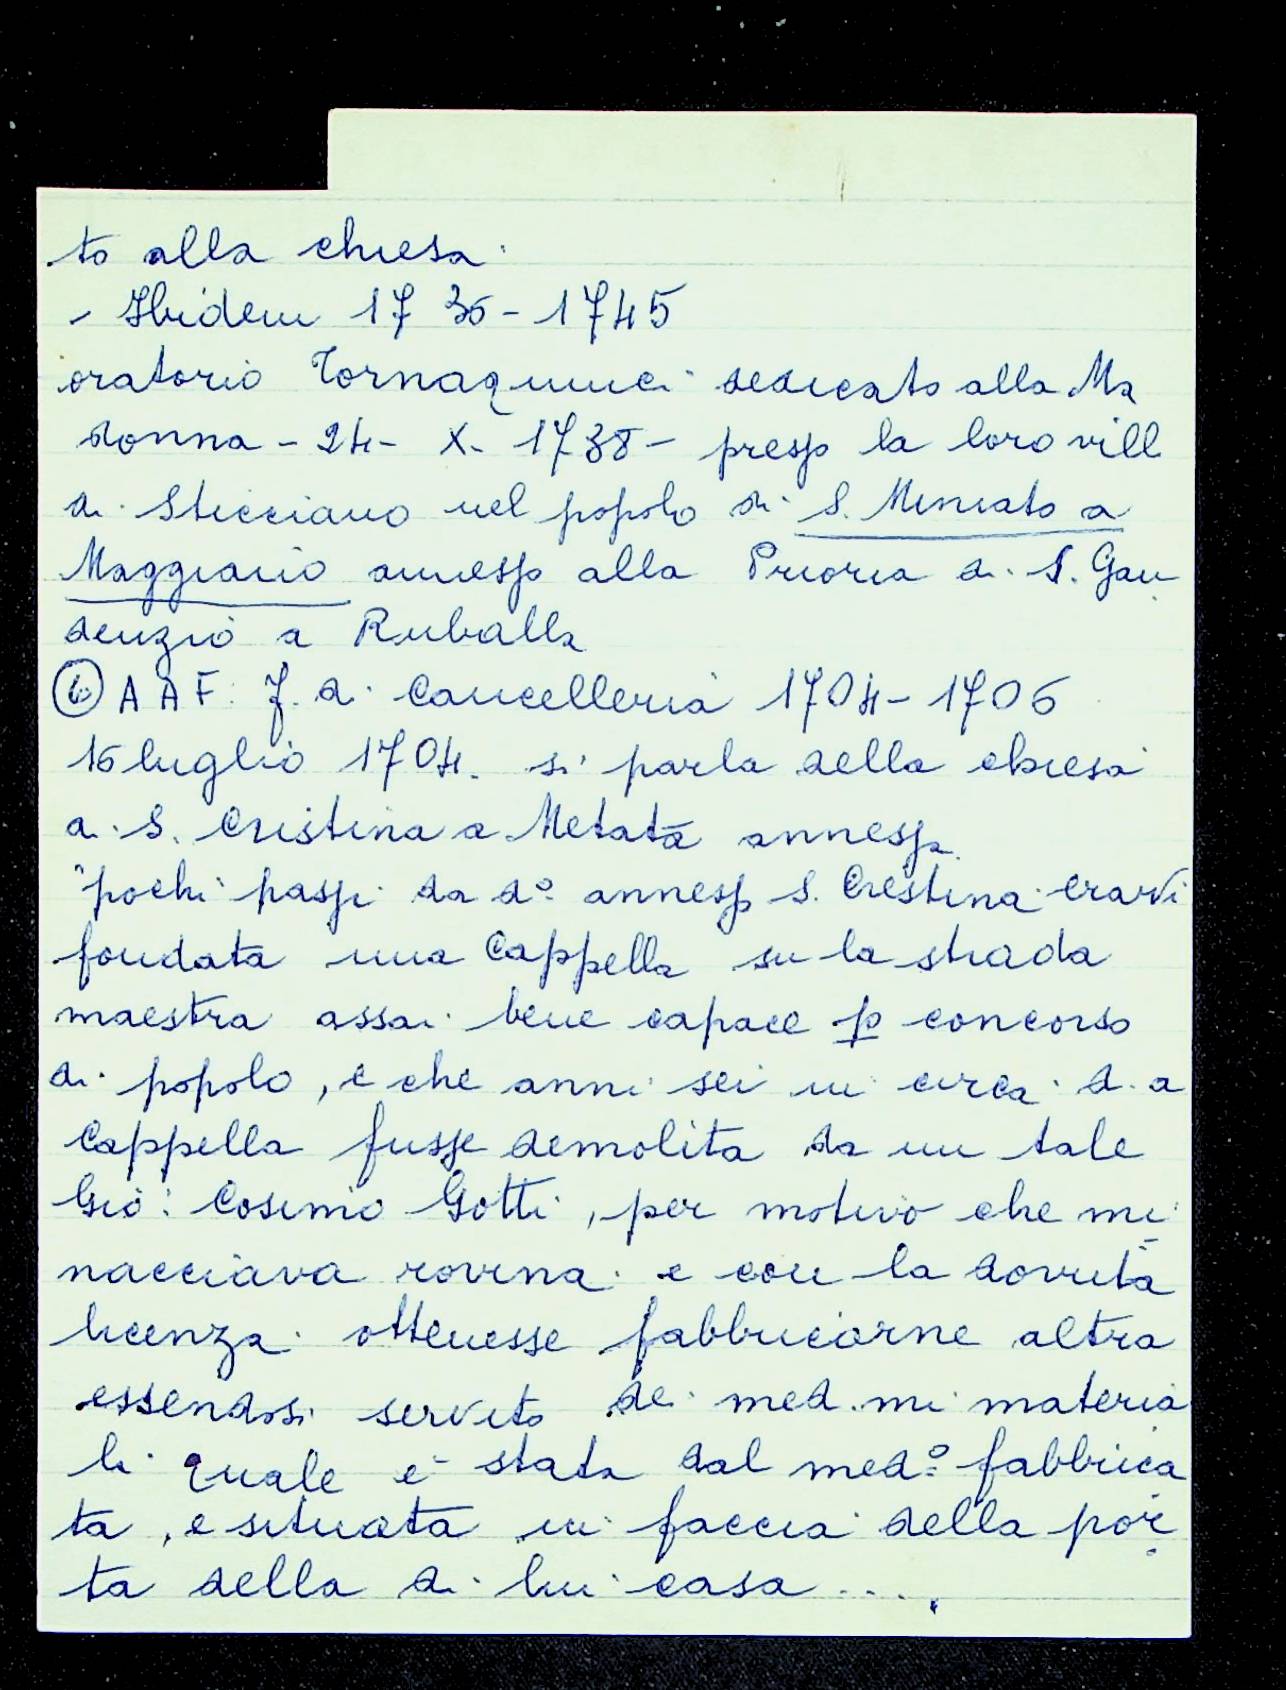 to alla chiesa.
- Ibidem 1736-1745
oratorio Tornaquinci dedicato alla Ma
donna - 24- X- 1738- presso la loro vill
di Sticciano nel popolo di S. Miniato a
Maggiano annesso alla Prioria di S. Gau
denzio a Ruballa
AAF. f. di Cancelleria 1704-1706
16 luglio 1704. si parla della chiesa
di S. Cristina a Metata annessa.
"pochi passi da dº annesso S. Cristina eravi
fondata una Cappella su la strada
maestra assai bene capace p concorso
di popolo, e che anni sei in circa d.a
Cappella fusse demolita da un tale
Gio: Cosimo Gotti, per motivo che mi
nacciava rovina e con la dovuta
licenza ottenesse fabbricarne altra
essendosi servito dei med.mi materia
li quale è stata dal medº fabbrica
ta, e situata in faccia della por
ta della di lui casa ....